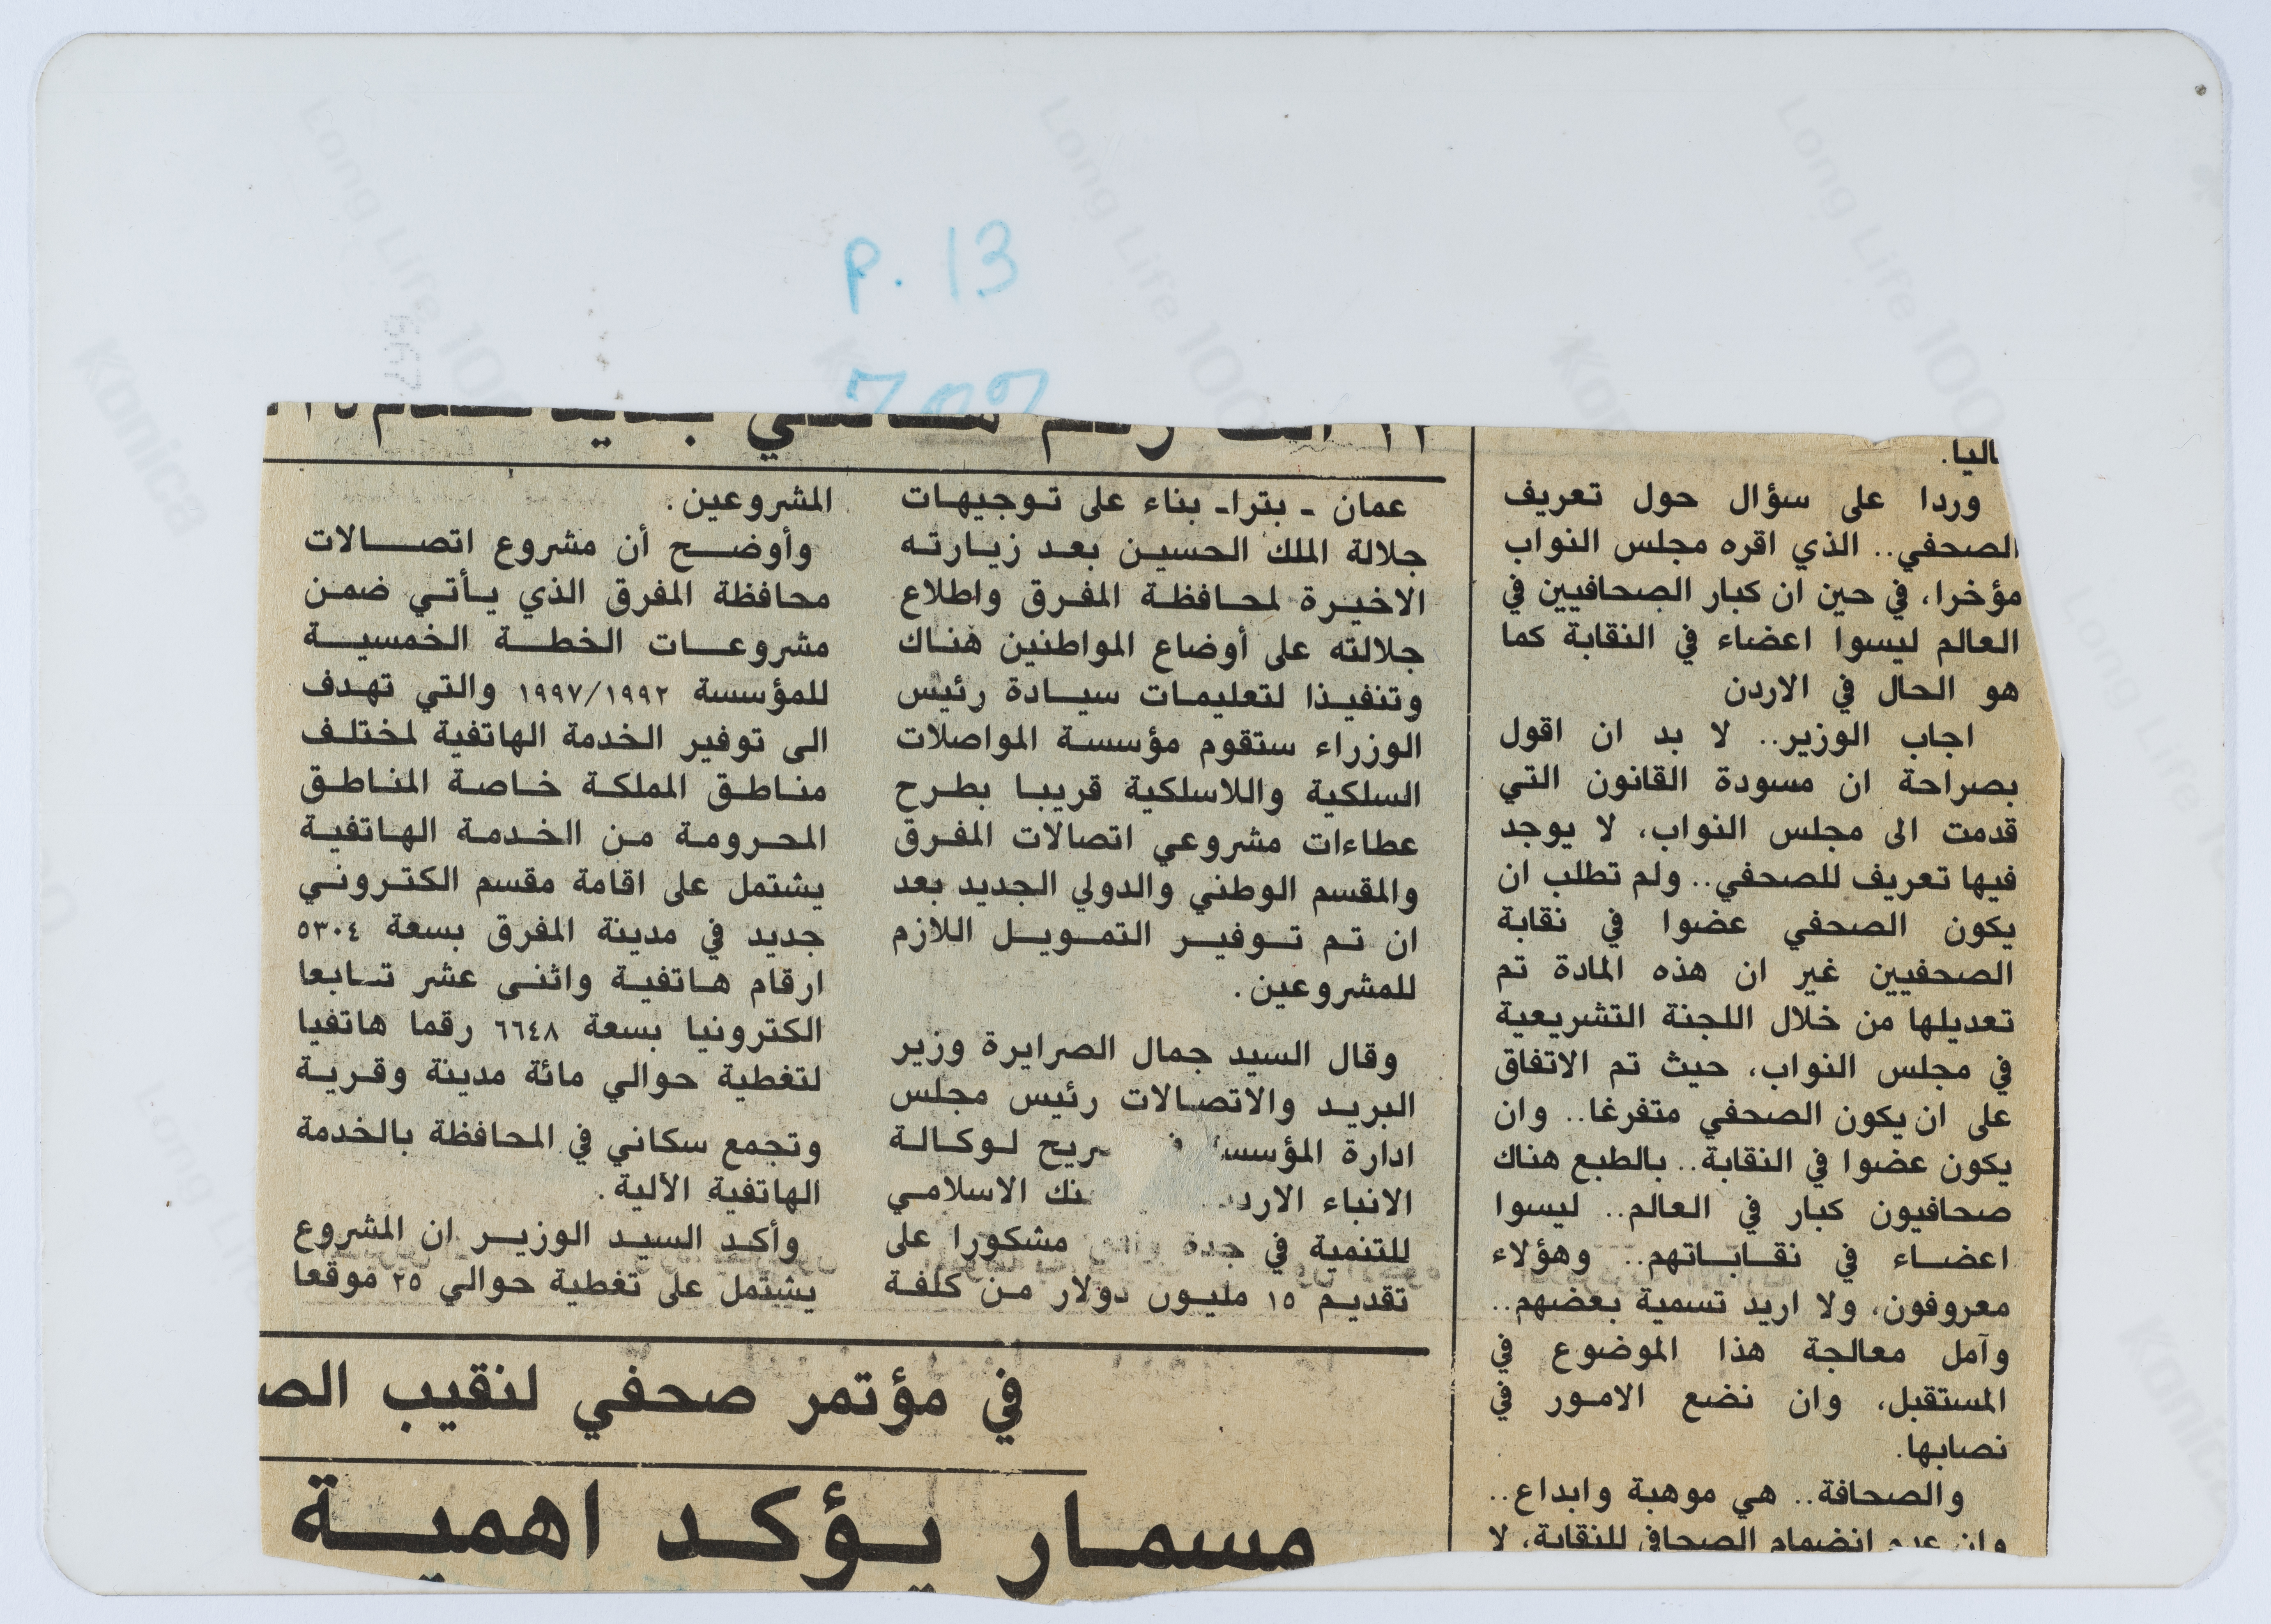 p. 13
اليا.
وردا على سؤال حول تعريف
الصحفي.. الذي اقره مجلس النواب
مؤخرا، في حين ان كبار الصحافيين في
العالم ليسوا اعضاء في النقابة كما
هو الحال في الاردن
اجاب الوزير.. لا بد ان اقول
بصراحة ان مسودة القانون التي
قدمت الى مجلس النواب، لا يوجد
فيها تعريف للصحفي.. ولم تطلب ان
يكون الصحفي عضوا في نقابة
الصحفيين غير ان هذه المادة تم
تعديلها من خلال اللجنة التشريعية
في مجلس النواب، حيث تم الاتفاق
على ان يكون الصحفي متفرغا.. وان
يكون عضوا في النقابة.. بالطبع هناك
صحافيون كبار في العالم.. ليسوا
اعضاء في نقاباتهم.. وهؤلاء
معروفون، ولا اريد تسمية بعضهم..
وآمل معالجة هذا الموضوع في
المستقبل، وان نضع الامور في
نصابها.
والصحافة.. هي موهبة وابداع..
وان عدم انضمام الصحافي للنقابة، لا
عمان - بترا- بناء على توجيهات
جلالة الملك الحسين بعد زيارته
الاخيرة لمحافظة المفرق واطلاع
جلالته على أوضاع المواطنين هناك
وتنفيذا لتعليمات سيادة رئيس
الوزراء ستقوم مؤسسة المواصلات
السلكية واللاسلكية قريبا بطرح
عطاءات مشروعي اتصالات المفرق
والمقسم الوطني والدولي الجديد بعد
ان تم توفير التمويل اللازم
للمشروعين.
وقال السيد جمال الصرايرة وزير
البريد والاتصالات رئيس مجلس
ادارة المؤسس ريح لوكالة
الانباء الارد نك الاسلامي
للتنمية في جدة مشكورا على
تقديم ١٥ مليون دولار من كلفة
المشروعين.
وأوضح أن مشروع اتصالات
محافظة المفرق الذي يأتي ضمن
مشروعات الخطة الخمسية
للمؤسسة ١٩٩٧/١٩٩٢ والتي تهدف
الى توفير الخدمة الهاتفية لمختلف
مناطق المملكة خاصة المناطق
المحرومة من الخدمة الهاتفية
يشتمل على اقامة مقسم الكتروني
جديد في مدينة المفرق بسعة ٥٣٠٤
ارقام هاتفية واثنى عشر تابعا
الكترونيا بسعة ٦٦٤٨ رقما هاتفيا
لتغطية حوالي مائة مدينة وقرية
وتجمع سكاني في المحافظة بالخدمة
الهاتفية الآلية.
وأكد السيد الوزير ان المشروع
يشتمل على تغطية حوالي ٢٥ موقعا
في مؤتمر صحفي لنقيب الص
مسمار يؤكد اهمية